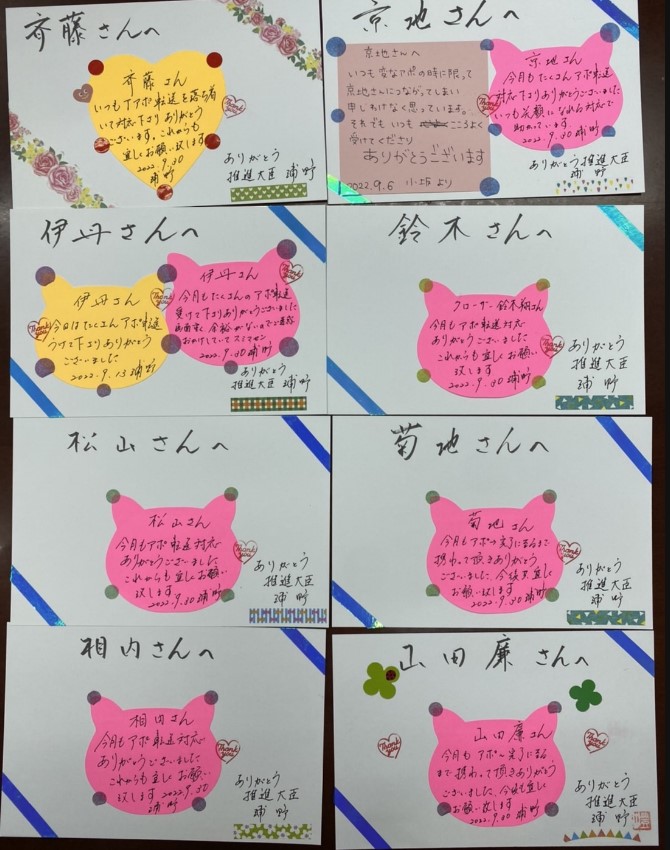 斉藤さんへ
斉藤さん
いつもアポ転送を落ち着
いて対応下さりありがとう
ございます。これからも
宜しくお願い致します。
2022.9.30
浦野
ありがとう
推進大臣
浦野
京地さんへ
京地さんへ
いつも変なアポの時に限って
京地さんにつながってしまい
申しわけなく思っています。
それでもいつも こころよく
受けてくださり
ありがとうございます
2022.9.6 小坂より
京地さん
今月もたくさんアポ転送
対応下さりありがとうございました
いつも笑顔になれる対応で
助かっています
2022.9.30 浦野
ありがとう推進大臣
浦野
伊丹さんへ
伊丹さん
今日はたくさんアポ転送
うけて下さりありがとう
ございました
2022.9.13 浦野
Thank you
伊丹さん
今月もたくさんのアポ転送
受けて下さりありがとうございました
おかけしていてスミマセン
2022.9.30 浦野
Thank you
Thank you
ありがとう
推進大臣
浦野
鈴木さんへ
クローザー鈴木翔さん
今月もアポ転送対応
ありがとうございました
これからも宜しくお願い
致します
2022.9.30 浦野
Thank you
ありがとう
推進大臣
浦野
松山さんへ
松山さん
今月もアポ転送対応
ありがとうございました
これからも宜しくお願い
致します
2022.9.30 浦野
Thank you
ありがとう
推進大臣
浦野
菊地さんへ
菊地さん
今月もアポの完了に至るまで
携わって頂きありがとう
ございました。今後共宜しく
お願い致します
2022.9.30 浦野
Thank you
ありがとう
推進大臣
浦野
相内さんへ
相内さん
今月もアポ転送対応
ありがとうございました
これからも宜しくお願い
致します 2022.9.30
浦野
Thank you
ありがとう
推進大臣
浦野
山田廉さんへ
山田廉さん
今月もアポの完了に至る
まで携わって頂きありがとう
ございました。今後も宜しく
お願い致します
2022.9.30 浦野
Thank you
Thank you
ありがとう
推進大臣
浦野